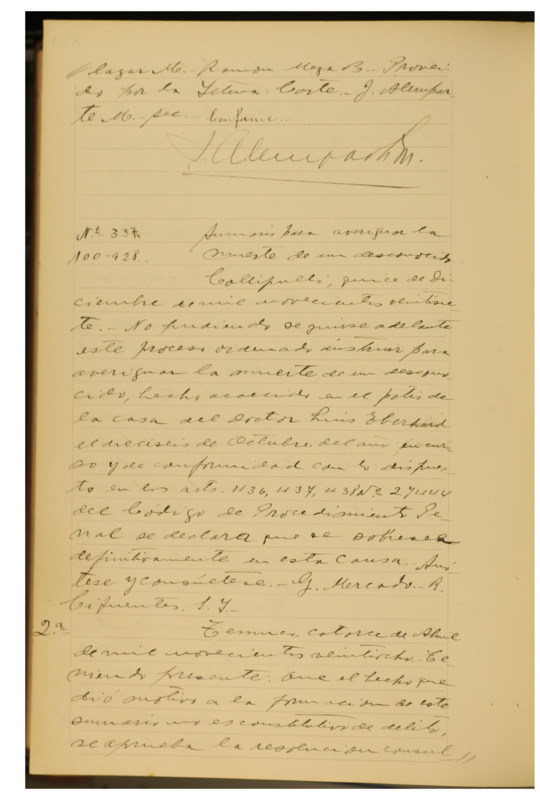 Salazar M. - Ramón Meza B. - Provei-
do por la Iltma. Corte. - J. Alempar-
te M. - sec. - Conforme.
J. Alemparte M.
Nº 337. Sumario para averiguar la
100-928. muerte de un desconocido.
Collipulli, quince de di-
ciembre de mil novecientos veintisie-
te. - No pudiendo seguirse adelante
este proceso ordenado instruir para
averiguar la muerte de un descono-
cido, hecho acaecido en el patio de
la casa del doctor Luis Eberhard
el dieciseis de Octubre del año en cur-
so y de conformidad con lo dispues-
to en los arts. 436, 437, 438 Nº 2 y 444
del Codigo de Procedimiento Pe-
nal se declara que se sobresee
definitivamente en esta causa. Anó-
tese y consúltese. - G. Mercado. - R.
Cifuentes. S. J. -
2.a Temuco, catorce de Abril
de mil novecientos veintiocho. Te-
niendo presente: Que el hecho que
dió motivo a la formacion de este
sumario no es constitutivo de delito,
se aprueba la resolucion consul//